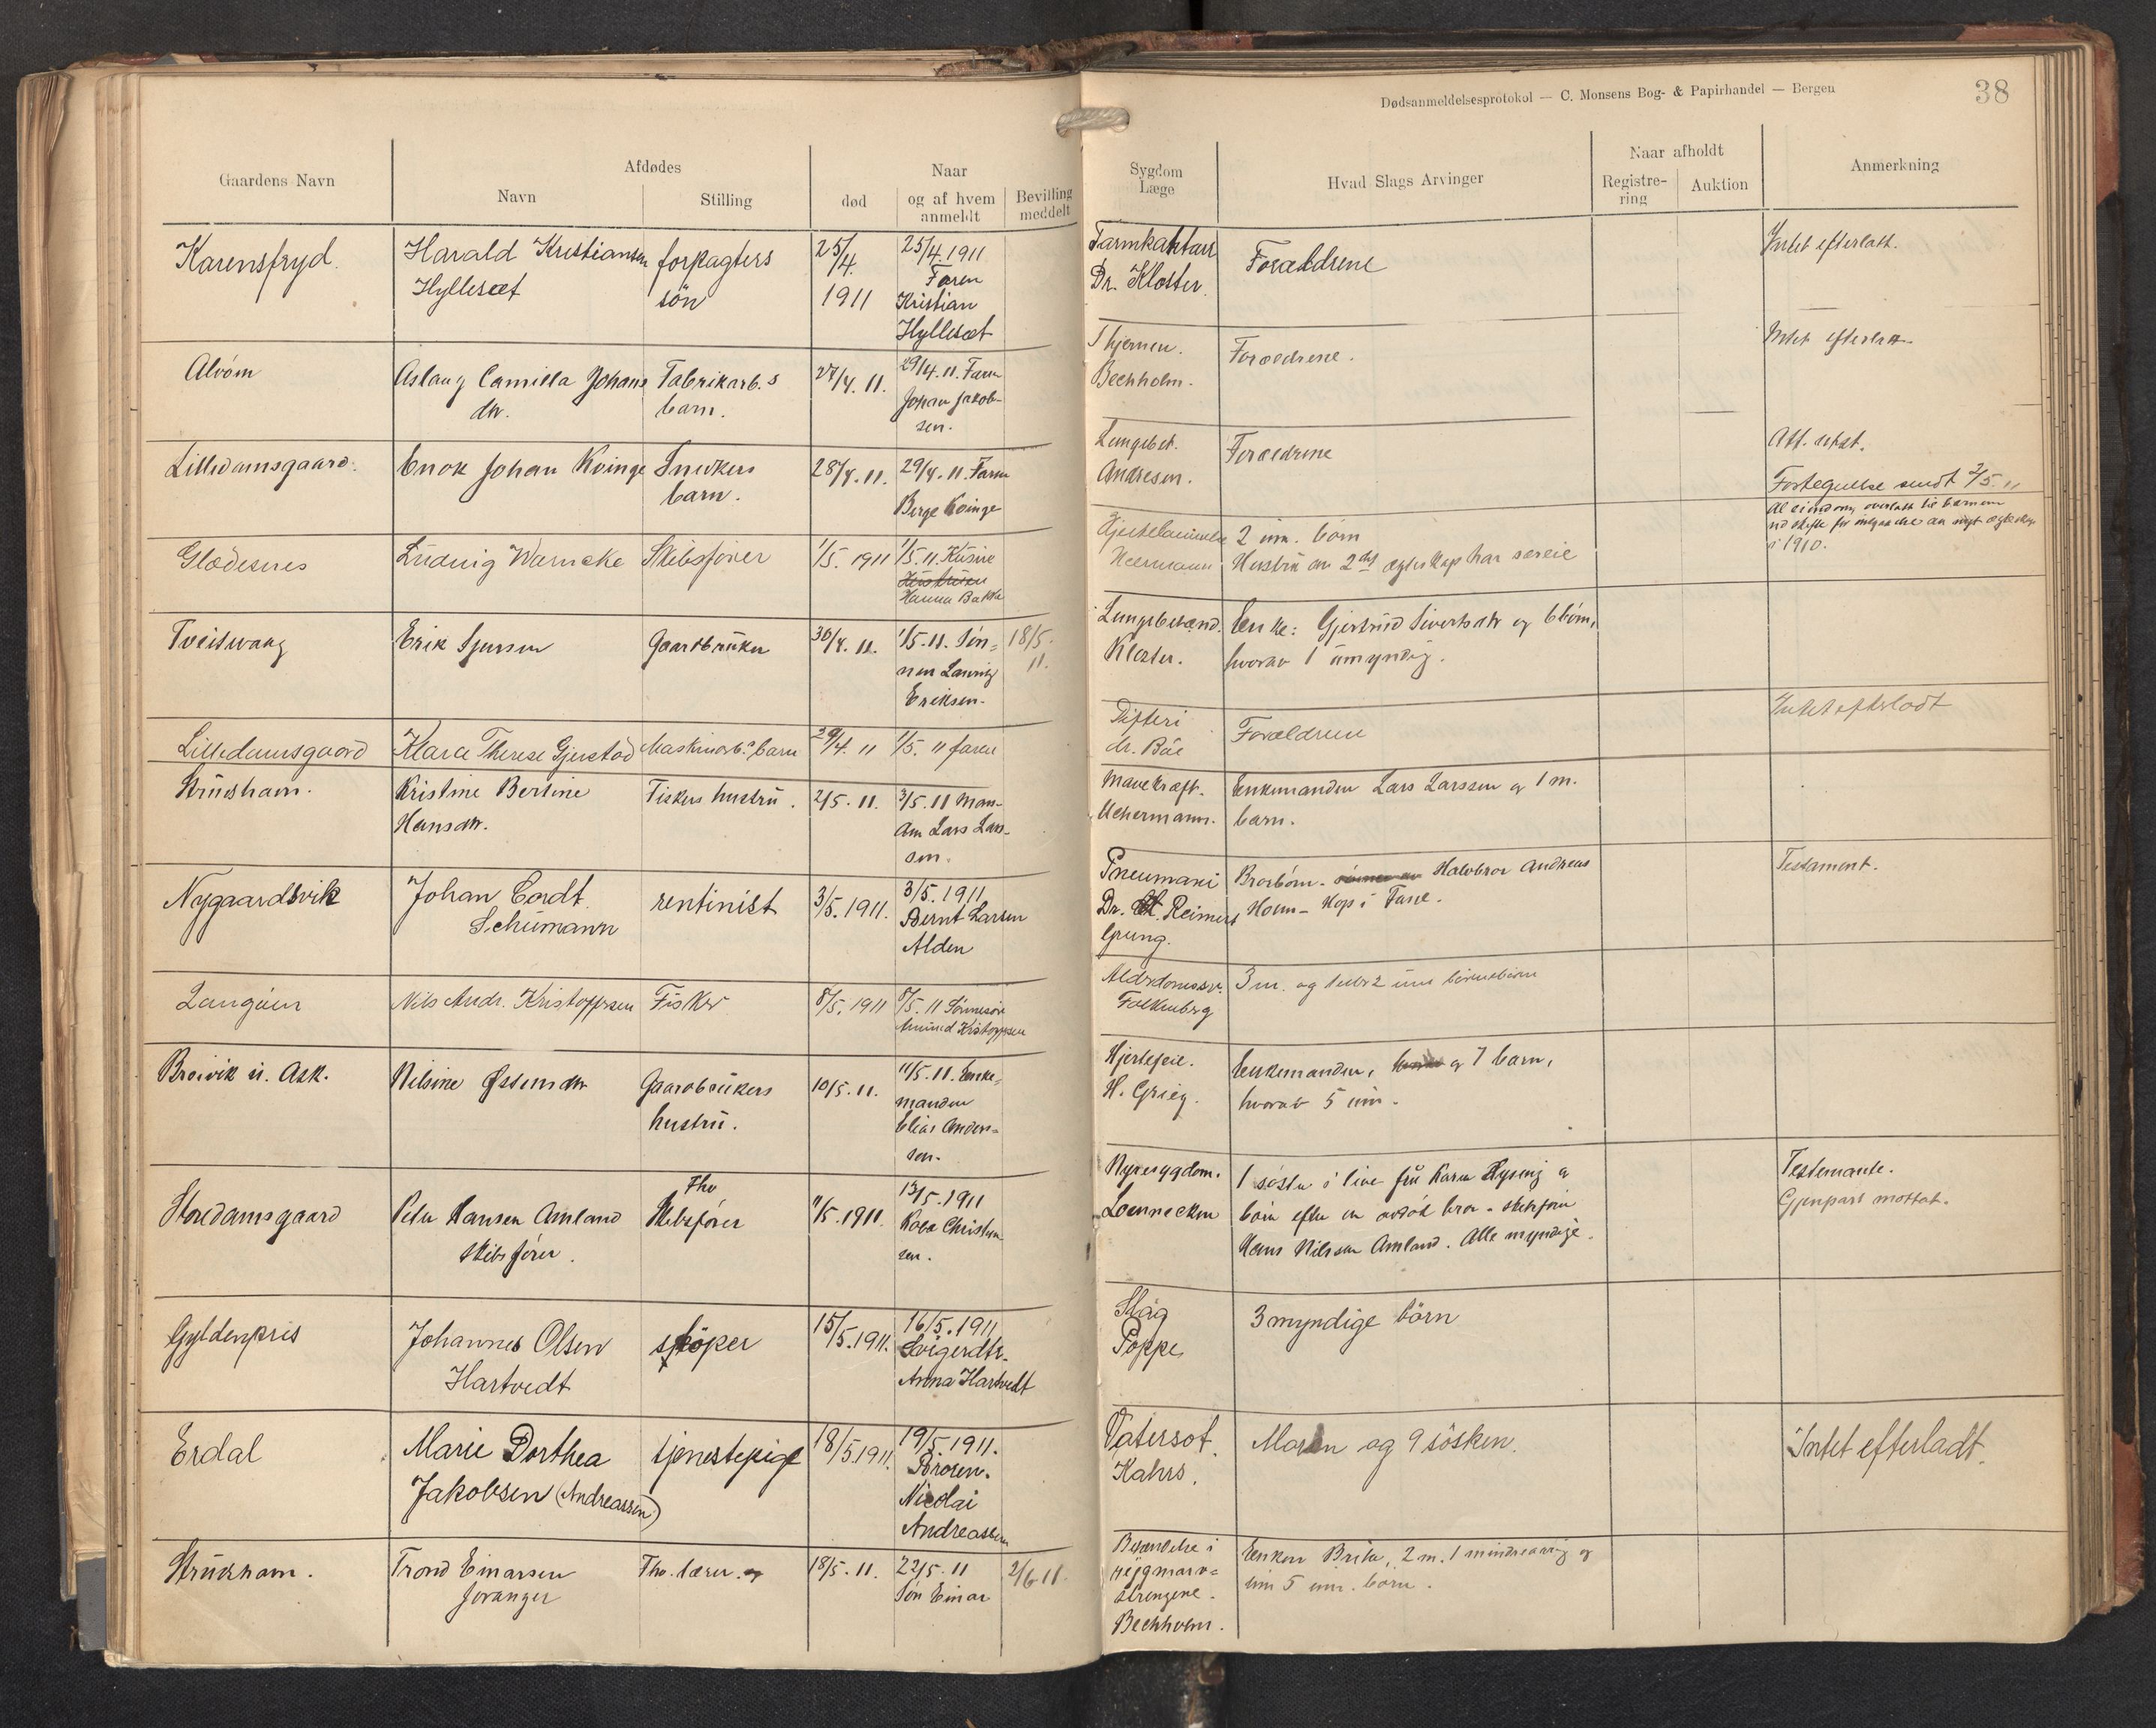 Dødsanmeldelsesprotokol — C. Monsens Bog- & Papirhandel — Bergen
38
Gaardens Navn
Afdødes
Navn
Stilling
Naar
død
og af hvem
anmeldt
Bevilling
meddelt
Sygdom
Læge
Hvad Slags Arvinger
Naar afholdt
Registre-
ring
Auktion
Anmerkning
Karensfryd.
Harald Kristiansen
Hyllesæt
forpagters
sön
25/4.
1911
25/4.1911
Faren
Kristian
Hyllesæt
Tarmkatarr
Dr. Kloster.
Forældrene
Intet efterlatt.
Alvøm
Aslaug Camilla Johans
dtr.
Fabrikarb.s
barn.
27/4. 11.
29/4. 11. Faren
Johan Jakob-
sen.
Bechholm.
Forældrene.
Intet efterlatt.
Lilledamsgaard.
Enok Johan Kvinge
Snekkers
barn.
28/4. 11.
29/4. 11. Faren
Berge Kvinge
Lungebet.
Andresen.
Forældrene
Att. utst.
Fortegnelse sendt 2/5. 11
Glædesnes
Ludvig Warncke
Skibsfører
1/5. 1911
1/5. 11. Kusine
Hanna Bakke
Hjertelammelse
Heermann
2 um. børn
Hustru av 2det ægteskap har særeie
Al eiendom overlatt til barnene
i 1910.
Tveitwaag
Erik Sjursen
Gaardbruker
30/4. 11.
1/5. 11. Søn-
nen Lauritz
Eriksen.
18/5.
11.
Lungebetænd.
Kloster.
Enke: Gjertrud Sivertsdtr og 6 børn,
hvorav 1 umyndig.
Lilledamsgaard
Klara Therese Gjerstad
Maskinarb.s barn
29/4. 11
1/5. 11 faren
Difteri
dr. Bøe
Forældrene
Intet efterladt
Strusham.
Kristine Bertine
Hansdtr.
Fiskers hustru.
2/5. 11.
3/5. 11 Man-
den Lars Lars-
sen.
Mavekræft.
Uchermann.
Enkemanden Lars Larssen og 1 m.
barn.
Nygaardsvik
Johan Cordt
Schumann
rentinist
3/5. 1911.
3/5. 1911
Bernt Larsen
Alden
Pneumani
Dr. Reimers
Grung.
Brorbørn. Halvbror Andreas
Hop i Fane.
Testament.
Langøen
Nils Andr. Kristoffersen
Fisker
8/5. 1911
8/5. 11 Sønnesøn
Amund Kristoffersen
Alderdomssv.
Falkenberg
3 m. og
Breivik u. Ask.
Nilsine Østensdtr
Gaardbrukers
hustru.
10/5. 11.
11/5. 11. Enke-
manden
Elias Anders-
sen.
Hjertefeil.
H. Grieg.
Enkemanden, og 7 barn,
hvorav 5 um.
Storedamsgaard
Peter Hansen Amland
skibsfører.
Fhv
Skibsfører
11/5. 1911.
13/5. 1911
Christen
sen.
Nyresygdom.
Loennecken
1 søster i live fru Karen Hysing og
børn efter en avdød bror - skibsfører
Hans Nilssen Amland. Alle myndige.
Testamente.
Gjenpart mottat.
Gyldenpris
Johannes Olsen
Hartvedt
skøper
15/5. 1911.
16/5. 1911
Svigerdtr.
Anna Hartvedt
Slag
Poppe
3 myndige börn
Erdal
Marie Dorthea
Jakobsen (Andreassen)
tjenestepige
18/5.1911.
19/5. 1911.
Broren.
Nicolai
Andreassen
Vatersot.
Kahrs.
Moren og 9 søsken.
Intet efterladt.
Strusham.
Trond Einarsen
Joranger
Fhv. lærer.
18/5. 11.
22/5. 11
Søn Einar
2/6 11.
Betændelse i
rygmarv-
strengene.
Bechholm.
Enken Brita, 2 m. 1 mindreaarig og
5 um. børn.